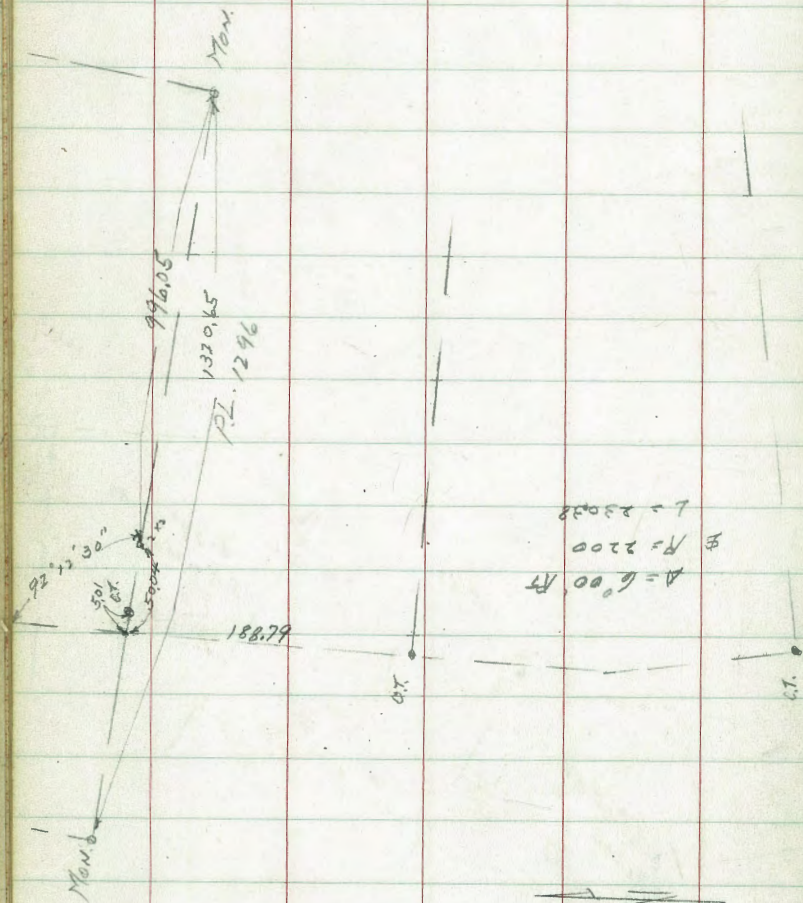 Mon.
996.05
1330.65
P.L. 1296
92° 12' 30"
5.01
C.T.
50.04
188.79
C.T.
Δ = 6°00' RT
R = 2200
L = 230.38
C.T.
Mon.